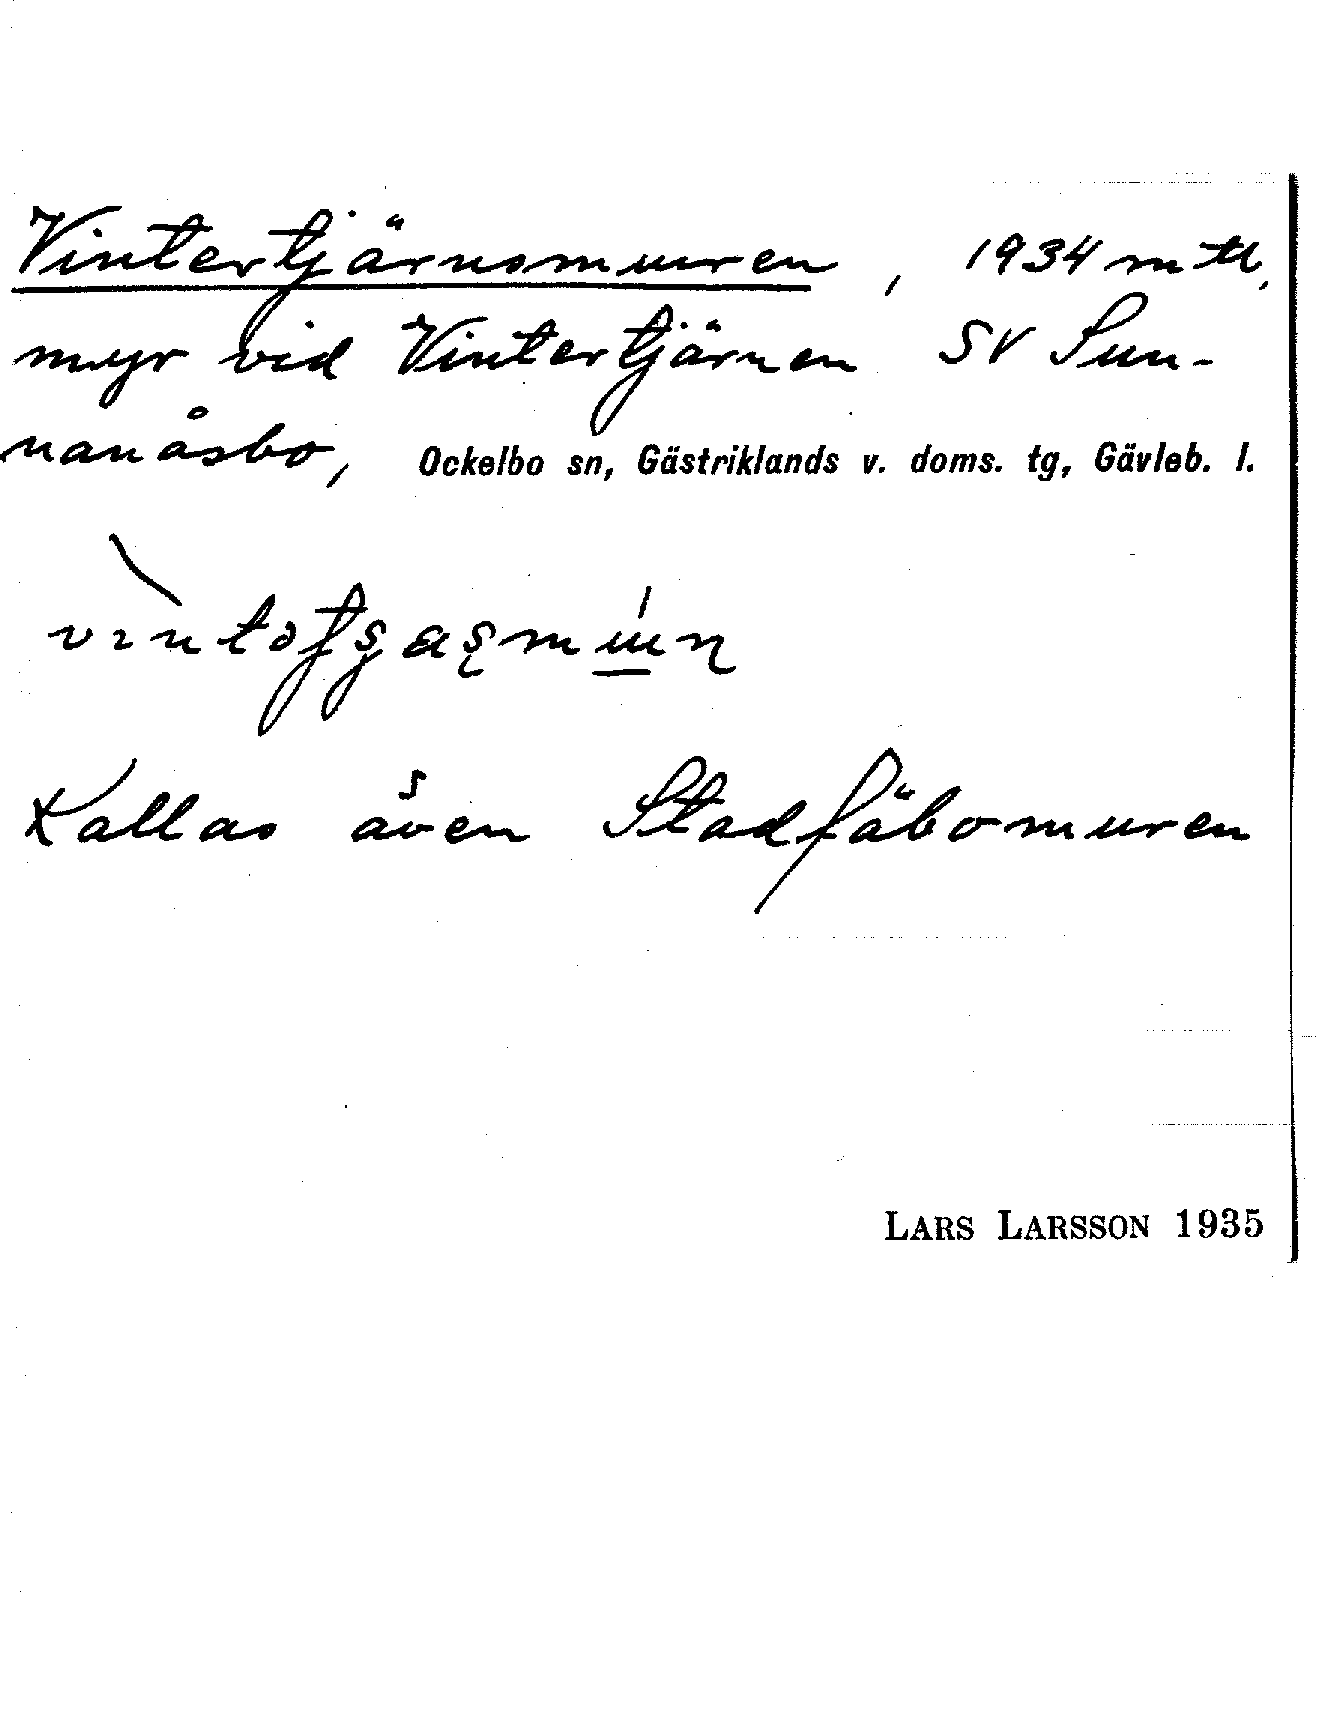 Vintertjärnsmuren, 1934 m tl,
myr vid Vintertjärnen SV Sun-
nanåsbo, Ockelbo sn, Gästriklands v. doms. tg, Gävleb. l.
Kallas även Stadfäbomuren
LARS LARSSON 1935